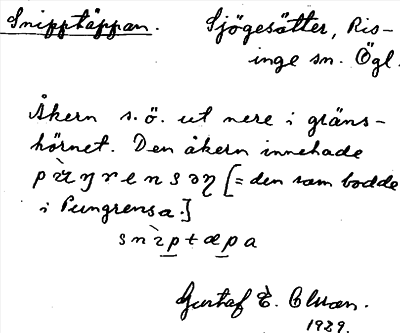 Snipptäppan. Sjögesätter, Ris-
inge sn. Ögl.
Åkern s.ö. ut nere i gräns-
hörnet. Den åkern innehade
[= den som bodde
i Pungrensa.]
Gustaf E.
1929.